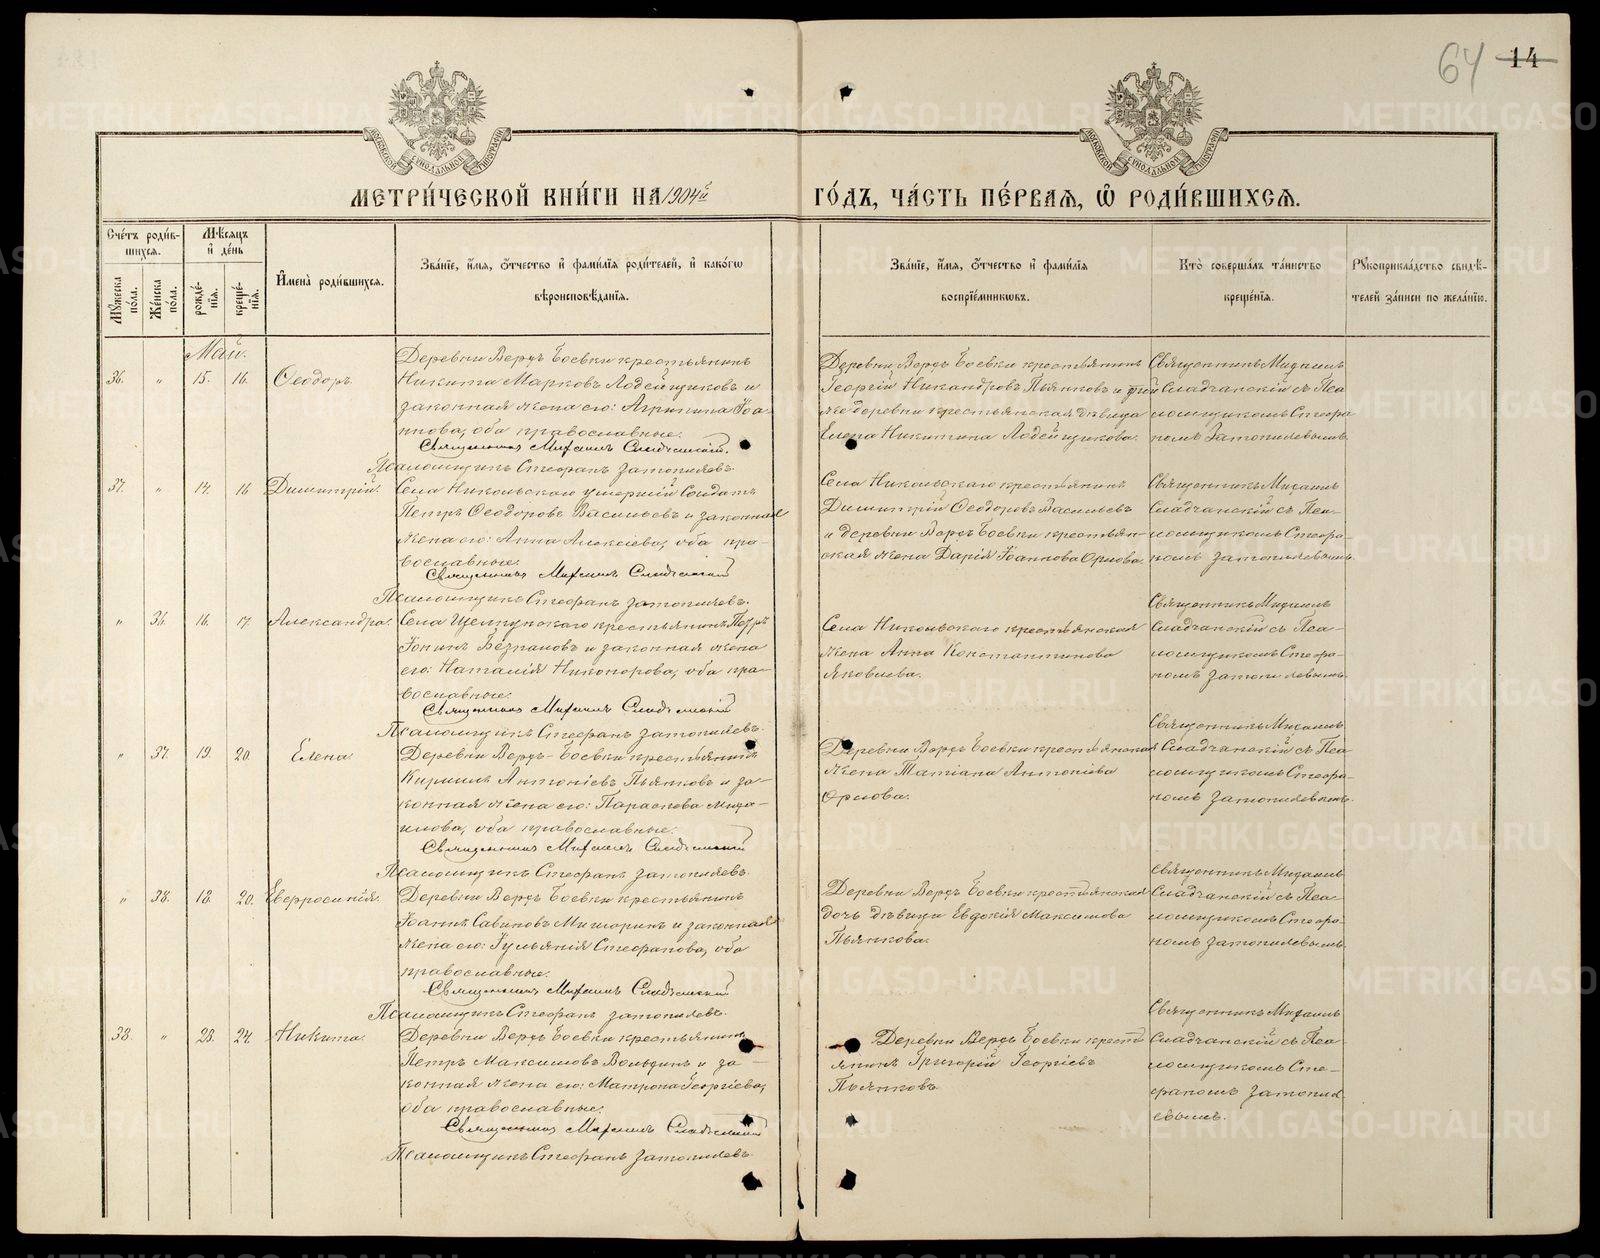 64 14
МОСКОВСКОЙ СѴНОДАЛЬНОЙ ТИПОГРАФІИ
МОСКОВСКОЙ СѴНОДАЛЬНОЙ ТИПОГРАФІИ
МЕТРИ́ЧЕСКОЙ КНИ́ГИ НА 1904й ГО́ДЪ, ЧА́СТЬ ПЕ́РВАѦ, Ѡ РОДИ́ВШИХСѦ.
Сче́тъ роди́в-
шихсѧ.
Мꙋ́жеска по́ла.
Же́нска по́ла.
Мѣ́сѧцъ
и҆ де́нь
рожде́-
нїѧ.
креще́-
нїѧ.
И҆мена̀ роди́вшихсѧ.
Зва́нїе, и҆́мѧ, ѻ҆́тчество и҆ фами́лїѧ роди́телей, и҆ како́гѡ
вѣроисповѣ́данїѧ.
Зва́нїе, и҆́мѧ, ѻ҆́тчество и҆ фами́лїѧ
воспрїе́мникѡвъ.
Кто̀ соверша́лъ та́инство
креще́нїѧ.
Рꙋкоприкла́дство свидѣ́-
телей за́писи по жела́нїю.
Май.
36. „ 15. 16. Ѳеодоръ.
Деревни Верхъ Боевки крестьянинъ
Никита Марковъ Лодейщиковъ и
законная жена его: Агрипина Іоа-
ннова, оба православные.
Священникъ Михаилъ Сладчанскій.
Псаломщикъ Стефанъ Затопляевъ.
Деревни Верхъ Боевки крестьянинъ
Георгій Никандровъ Пьянковъ и той
же деревни крестьянская дѣвица
Елена Никитина Лодейщикова.
Священникъ Михаилъ
Сладчанскій съ Пса
ломщикомъ Стефа
номъ Затопляевымъ.
37. „ 14. 16 Димитрій.
Села Никольскаго умершій Солдатъ
Петръ Ѳеодоровъ Васильевъ и законная
жена его: Анна Алексіева, оба пра-
вославные.
Священникъ Михаилъ Сладчанскій
Псаломщикъ Стефанъ Затопляевъ.
Села Никольскаго крестьянинъ
Димитрій Ѳеодоровъ Васильевъ
и деревни Верхъ Боевки крестьян-
ская жена Дарія Іоаннова Орлова.
Священникъ Михаилъ
Сладчанскій съ Пса-
ломщикомъ Стефа-
номъ Затопляевымъ.
„ 36. 16. 17. Александра.
Села Щелкунскаго крестьянинъ Петръ
жена
его: Наталія Никонорова, оба пра-
вославные.
Священникъ Михаилъ Сладчанскій
Псаломщикъ Стефанъ Затопляевъ.
Села Никольскаго крестьянская
жена Анна Константинова
Яковлева.
Священникъ Михаилъ
Сладчанскій съ Пса-
ломщикомъ Стефа-
номъ Затопляевымъ.
„ 37. 19. 20. Елена
Деревни Верхъ-Боевки крестьянинъ
Кириллъ Антоніевъ Пьянковъ и за-
конная жена его: Параскева Миха-
илова, оба православные.
Священникъ Михаилъ Сладчанскій
Псаломщикъ Стефанъ Затопляевъ.
Деревни Верхъ Боевки крестьянская
жена Татіана Антоніева
Орлова.
Священникъ Михаилъ
Сладчанскій съ Пса
ломщикомъ Стефа-
номъ Затопляевымъ.
„ 38. 18. 20. Евфросинія.
Деревни Верхъ Боевки крестьянинъ
Іоаннъ Савиновъ и законная
жена его: Іуліанія Стефанова, оба
православные.
Священникъ Михаилъ Сладчанскій
Псаломщикъ Стефанъ Затопляевъ.
Деревни Верхъ Боевки крестьянская
дочь дѣвица Евдокія Максимова
Пьянкова.
Священникъ Михаилъ
Сладчанскій съ Пса-
ломщикомъ Стефа-
номъ Затопляевымъ.
38. „ 23. 24. Никита.
Деревни Верхъ Боевки крестьянинъ
Петръ Максимовъ и за-
конная жена его: Матрона Георгіева,
оба православные.
Священникъ Михаилъ Сладчанскій
Псаломщикъ Стефанъ Затопляевъ.
Деревни Верхъ Боевки крестъ
янинъ Григорій Георгіевъ
Пьянковъ
Священникъ Михаилъ
Сладчанскій съ Пса-
ломщикомъ Сте-
фаномъ Затопля
евымъ.
METRIKI.GASO-URAL.RU